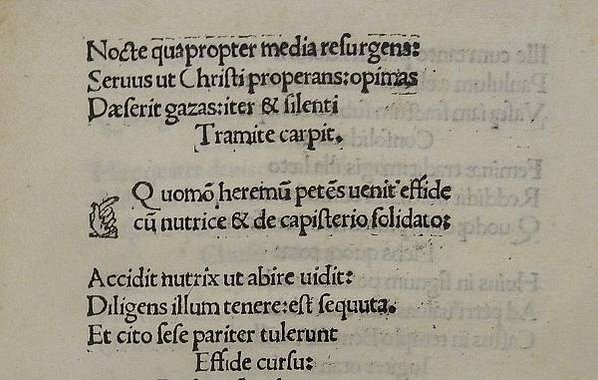 Nocte quapropter media resurgens:
Seruus ut Christi properans: opimas
Dæserit gazas: iter & silenti
Tramite carpit.
Quomō heremū petēs uenit effide
cū nutrice & de capisterio solidato:
Accidit nutrix ut abire uidit:
Diligens illum tenere: est sequuta.
Et cito sese pariter tulerunt
Effide cursu: